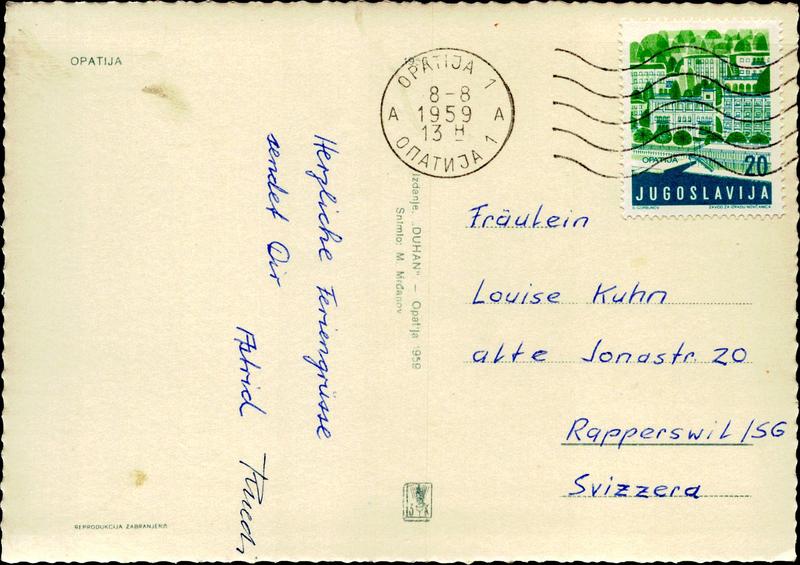 OPATIJA
Herzliche Feriengrüsse
sendet Dir
Astrid
REPRODUKCIJA ZABRANJENA
OPATIJA 1
8-8
A 1959 A
13 H
ОПАТИЈА 1
Izdanje „DUHAN" – Opatija 1959
Snimio: M. Mrđanov
OPATIJA
20
JUGOSLAVIJA
ZAVOD ZA IZRADU NOVČANICA
Fräulein
Louise Kuhn
alte Jonastr. 20
Rapperswil/SG
Svizzera